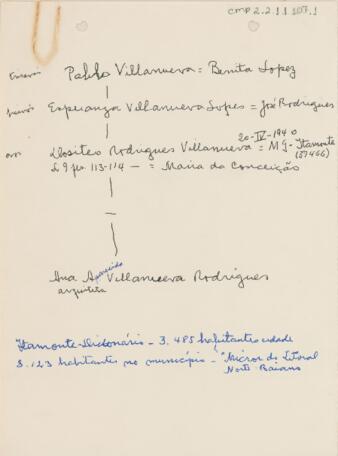 CMP 2.2.1.1.107.1
Pablo Villanueva = Benita Lopez
Esperanza Villanueva Lopes = José Rodrigues
avós
Dositeo Rodrigues Villanueva = MG - Itamonte
20-IV-1940
(37466)
L 9 fv. 113-114 — = Maria da Conceição
Ana Aparecida Villanueva Rodrigues
arquiteta
Itamonte - Dicionário - 3.485 habitantes cidade
8.123 habitantes no município - "Micror. do Litoral
Norte Baiano